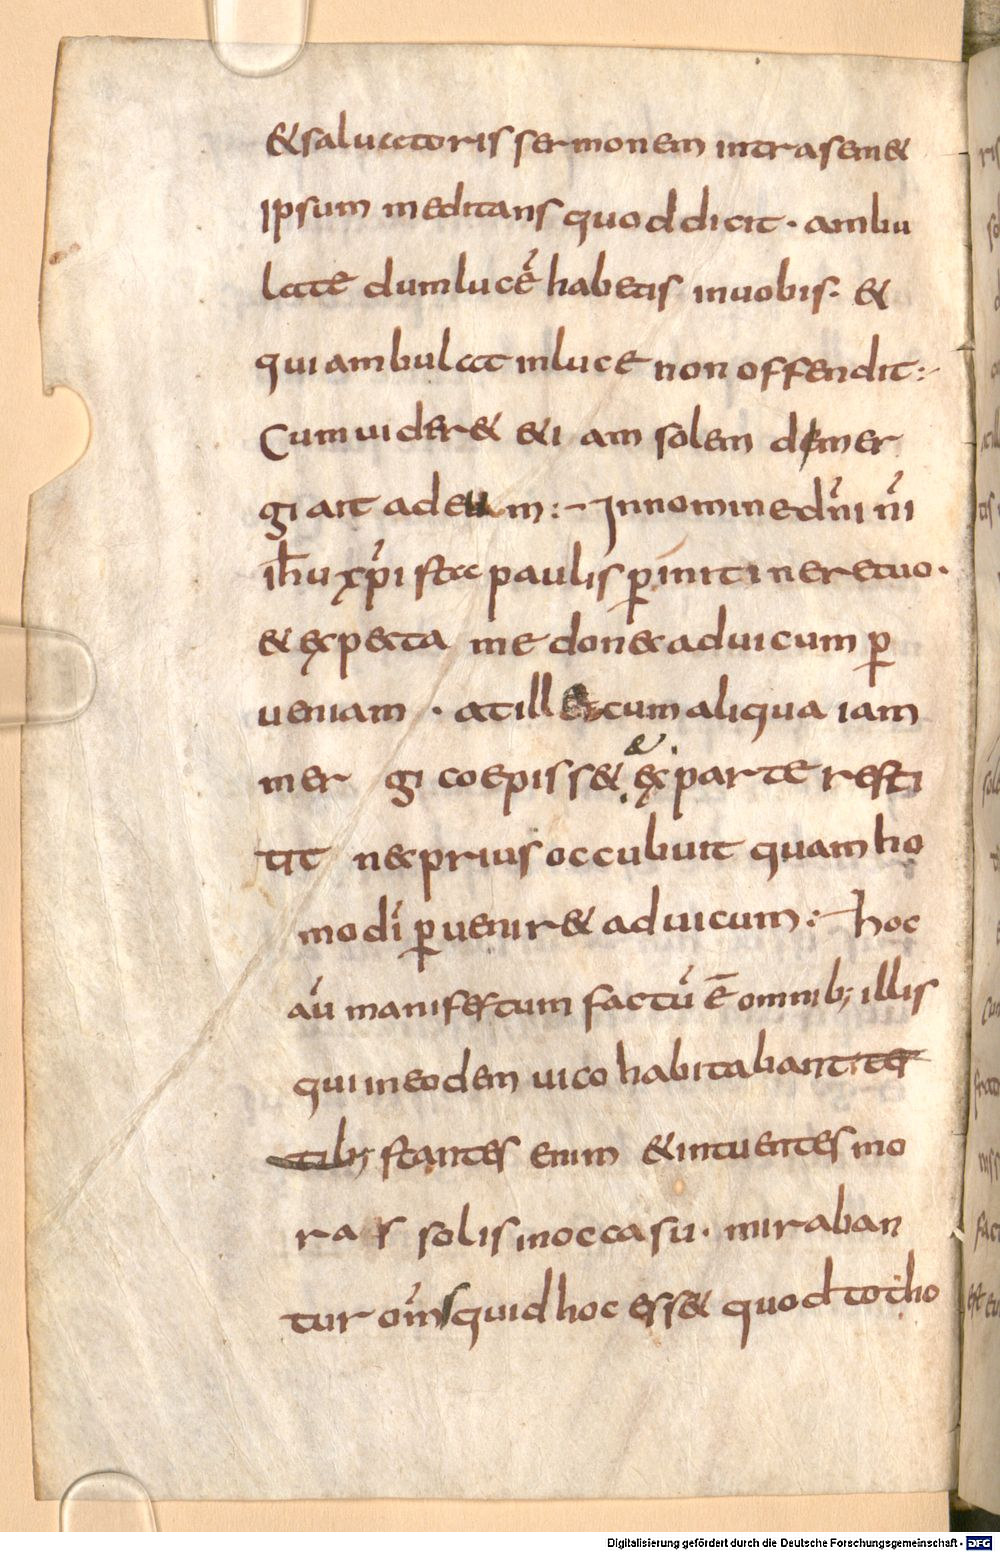 &saluatoris sermonem intrasem&
ipsum meditans quod dicit · ambu
late dum lucē habetis inuobis · &
qui ambulat inluce non offendit :-
Cum uider& &i am solem demer
gi ait ad eum :- Innomine dn̄i nr̄i
ih̄u xp̄i sta paulis ꝑ init itinere tuo ·
& exp&cta me don&c aduicum ꝑ
ueniam · at ill& cum aliqua iam
mer gi coepiss& & ex parte resti
tit n&c prius occubuit quam ho
mo di̅ ꝑuenir& aduicum :- hoc
au̅ manifestum factu̅ ē omnib; illis
qui ineodem uico habitabant
tib; stantes enim &intuentes mo
ra s solis inoccasu · miraban
tur om̅s quid hoc ess& quod totho
Digitalisierung gefördert durch die Deutsche Forschungsgemeinschaft - DFG